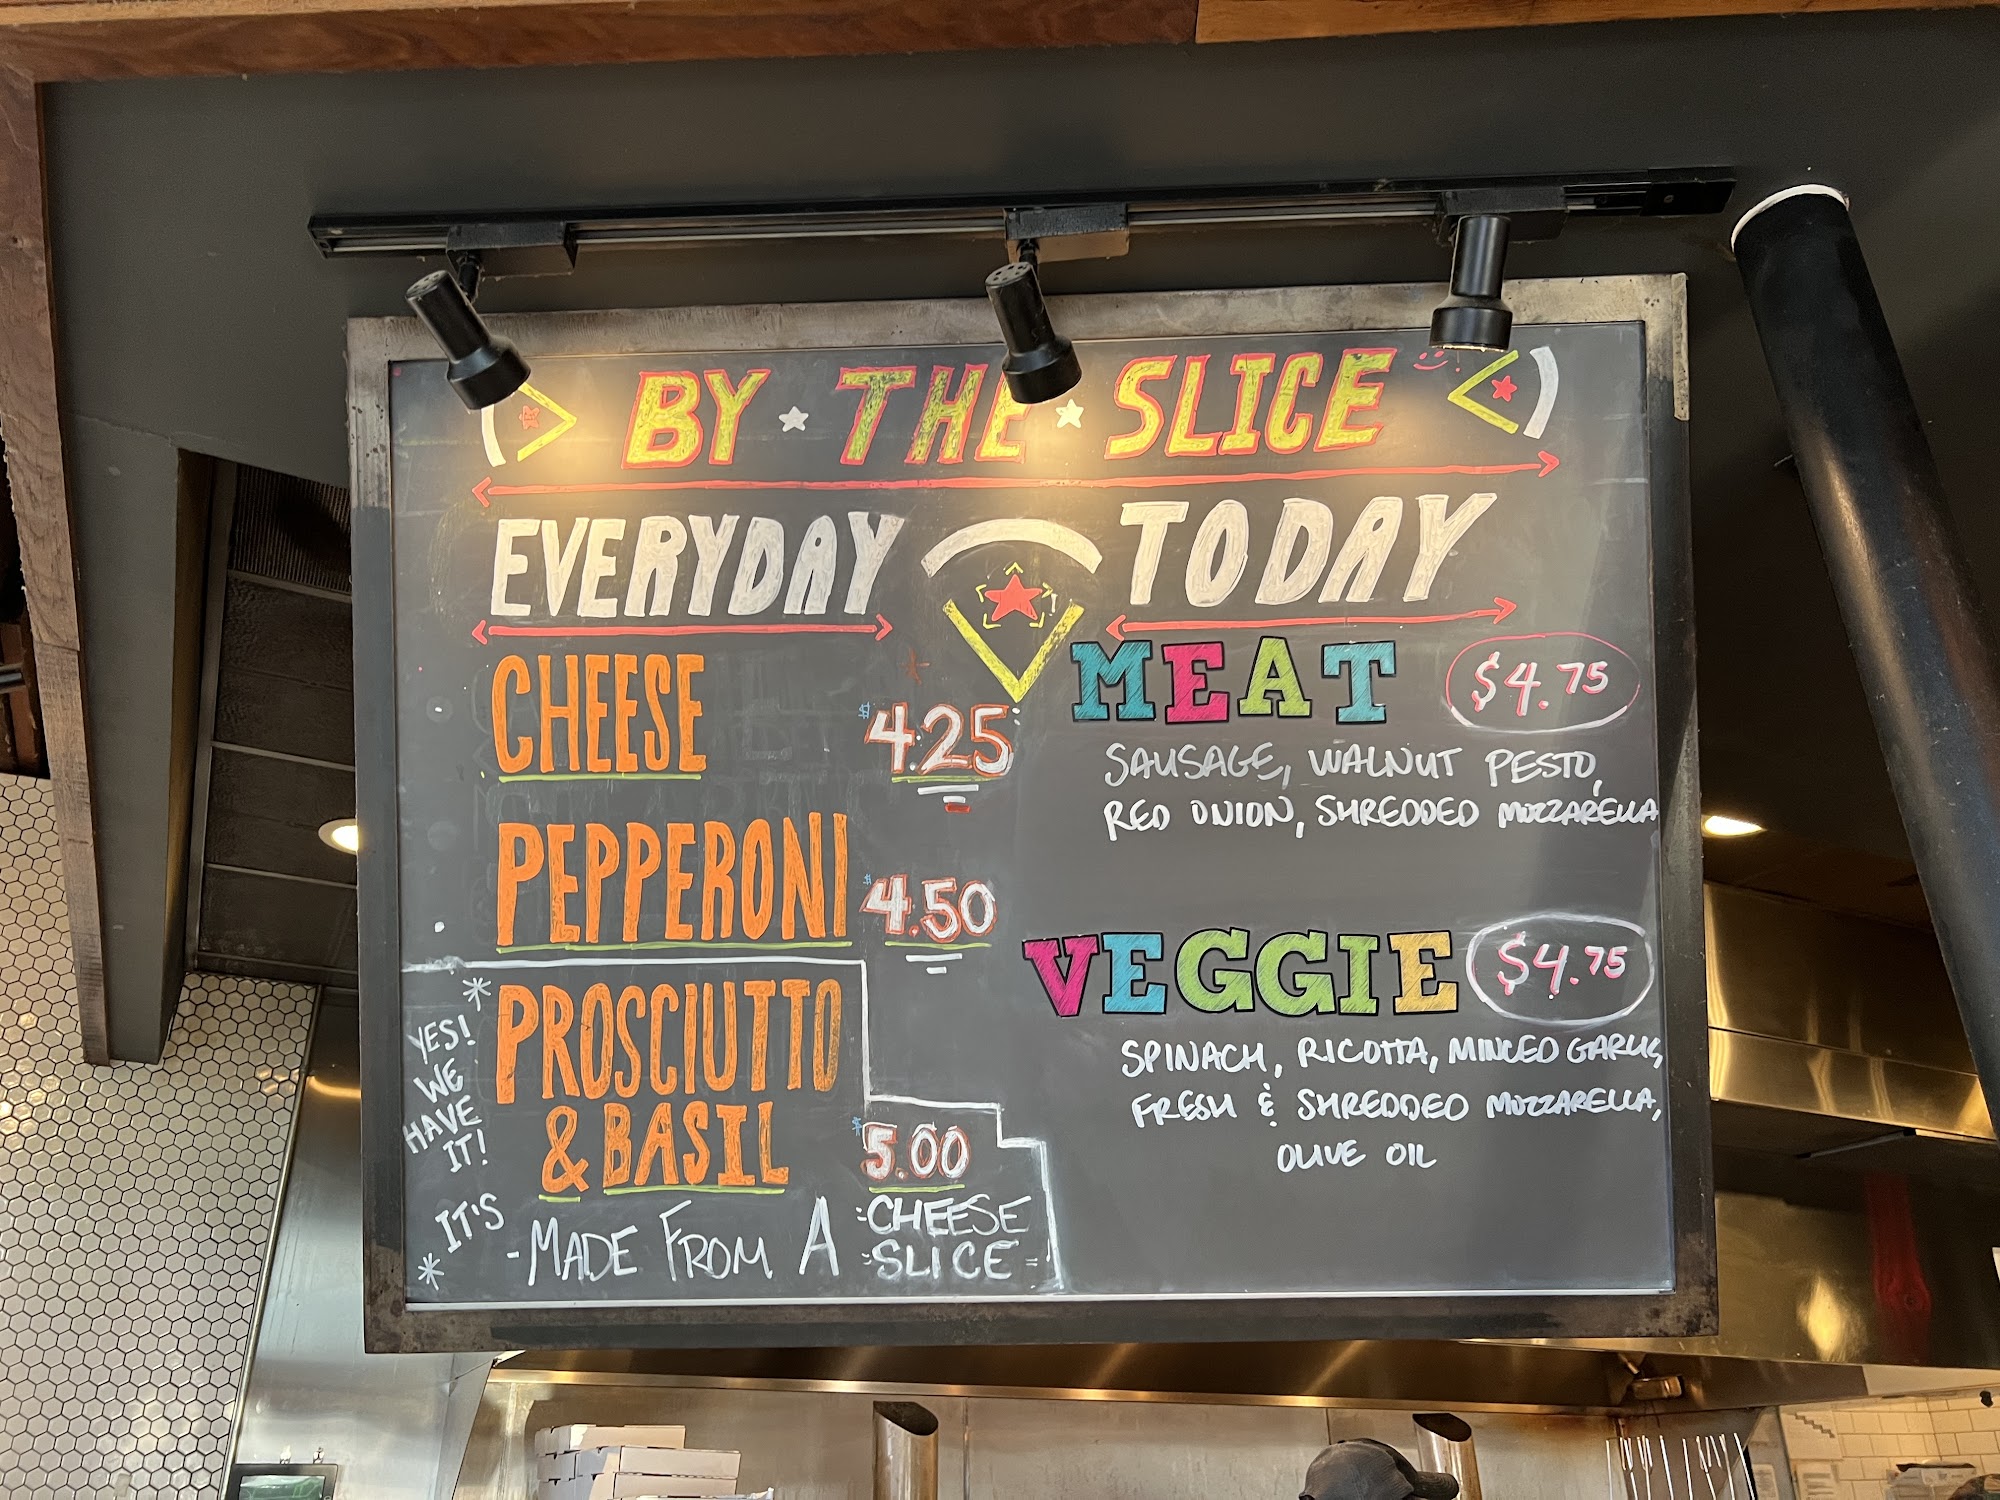 BY THE SLICE
EVERYDAY
CHEESE $4.25
PEPPERONI $4.50
* YES!
WE
HAVE
IT!
PROSCIUTTO
& BASIL $5.00
* IT'S
-MADE FROM A CHEESE
SLICE
TODAY
MEAT $4.75
SAUSAGE, WALNUT PESTO,
RED ONION, SHREDDED MOZZARELLA
VEGGIE $4.75
SPINACH, RICOTTA, MINCED GARLIC,
FRESH & SHREDDED MOZZARELLA,
OLIVE OIL